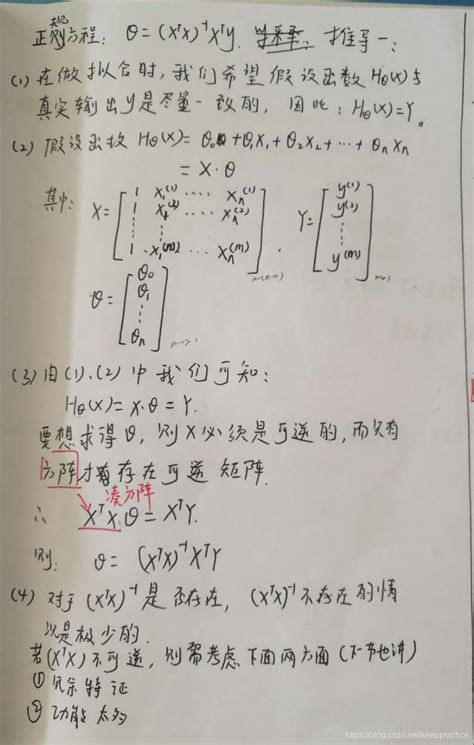 正规方程: θ = (XᵀX)⁻¹XᵀY. 推导一:
(1) 在做拟合时,我们希望假设函数Hθ(x)与
真实输出y是尽量一致的, 因此: Hθ(x)=Y。
(2) 假设函数 Hθ(x)= θ₀ + θ₁X₁ + θ₂X₂ + ··· + θₙXₙ
= X·θ
其中: X = [1 x₁⁽¹⁾ ···· xₙ⁽¹⁾; 1 x₁⁽²⁾ ···· xₙ⁽²⁾; ⋮ ⋮ ⋮; 1 x₁⁽ᵐ⁾ ···· xₙ⁽ᵐ⁾] , Y = [y⁽¹⁾; y⁽²⁾; ⋮; y⁽ᵐ⁾]
θ = [θ₀; θ₁; ⋮; θₙ]
(3) 由(1)、(2)中我们可知:
Hθ(x)= x·θ = Y.
要想求得θ, 则X必须是可逆的,而只有
方阵才有存在可逆矩阵.
凑方阵
∴ XᵀX·θ = XᵀY.
则: θ = (XᵀX)⁻¹XᵀY
(4) 对于(XᵀX)⁻¹是否存在, (XᵀX)⁻¹不存在的情
况是极少的.
若(XᵀX)不可逆, 则需考虑下面两方面(下一节也讲)
① 冗余特征
② 功能太多
https://blog.csdn.net/keeppractice